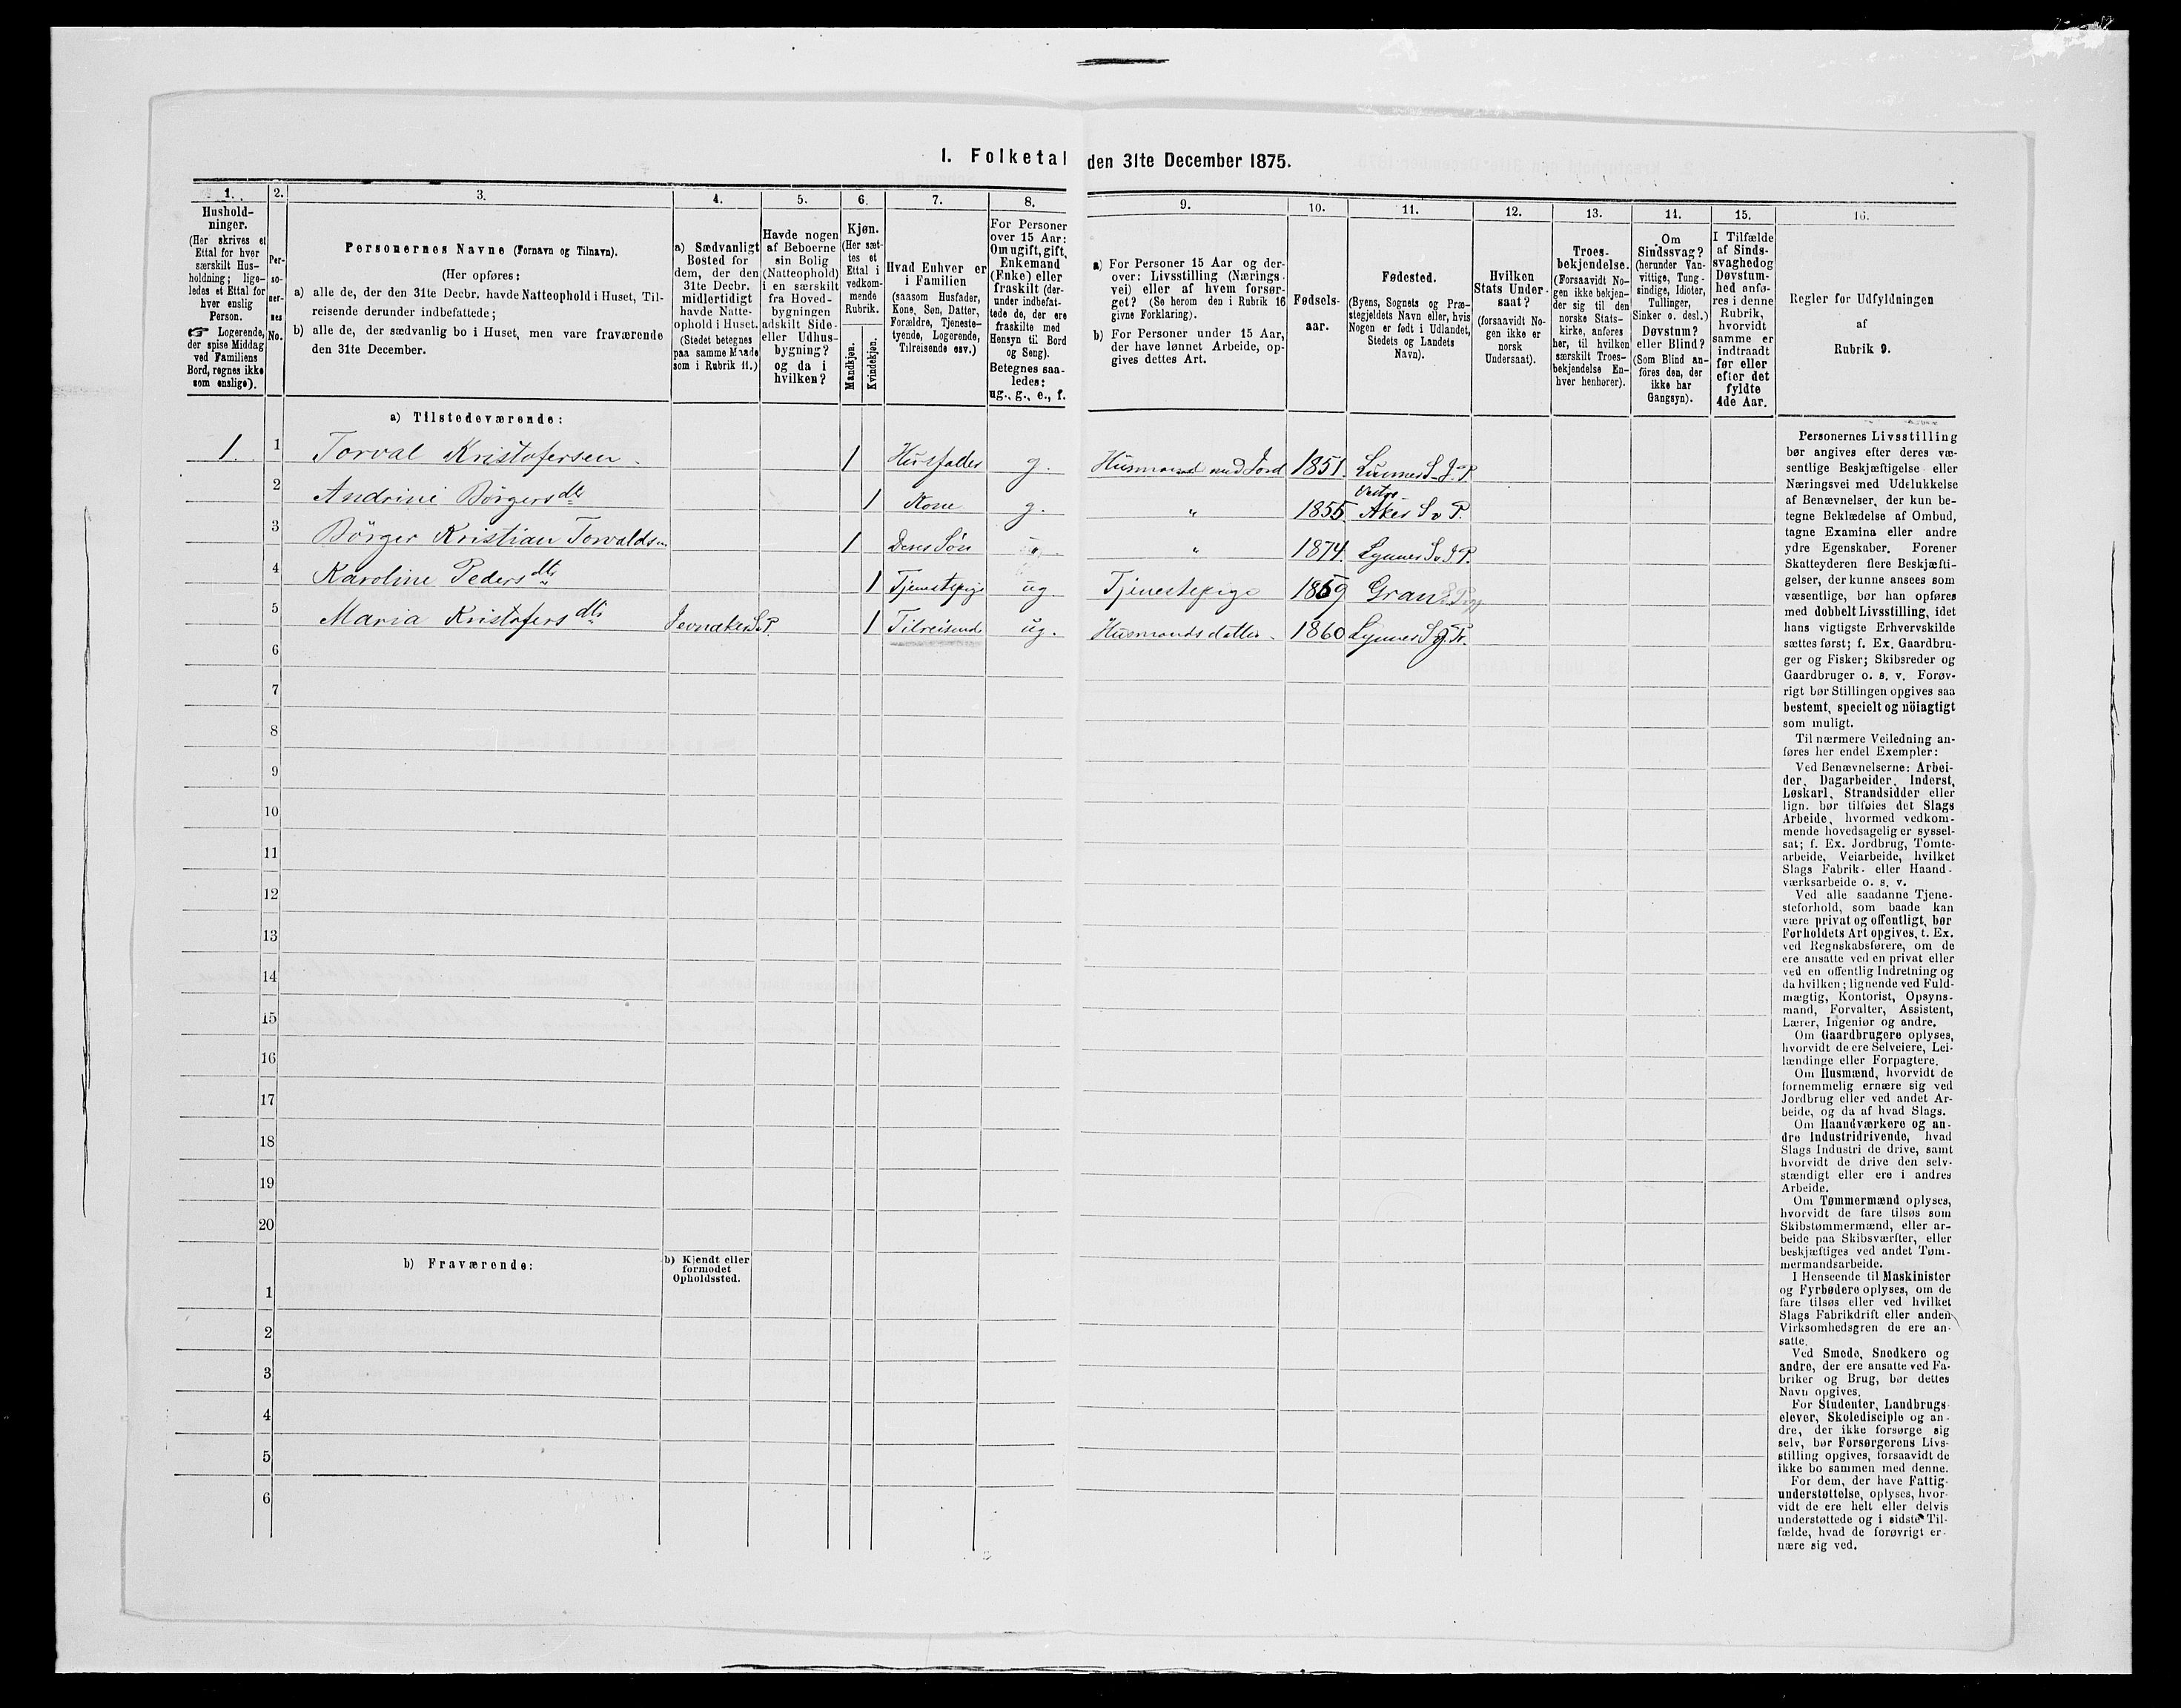 I. Folketal den 31te December 1875.
1. 2. 3. 4. 5. 6. 7. 8. 9. 10. 11. 12. 13. 14. 15. 16.
Hushold-
ninger.
(Her skrives et
Ettal for hver
særskilt Hus-
holdning; lige-
ledes et Ettal for
hver enslig
Person.
☞ Logerende,
der spise Middag
ved Familiens
Bord, regnes ikke
som enslige).
Per-
so-
ner-
nes
No.
Personernes Navne (Fornavn og Tilnavn).
(Her opføres:
a) alle de, der den 31te Decbr. havde Natteophold i Huset, Til-
reisende derunder indbefattede;
b) alle de, der sædvanlig bo i Huset, men vare fraværende
den 31te December.
a) Sædvanligt
Bosted for
dem, der den
31te Decbr.
midlertidigt
havde Natte-
ophold i Huset.
(Stedet betegnes
paa samme Maade
som i Rubrik 11.)
Havde nogen
af Beboerne
sin Bolig
(Natteophold)
i en særskilt
fra Hoved-
bygningen
adskilt Side-
eller Udhus-
bygning?
og da i
hvilken?
Kjøn.
(Her sæt-
tes et
Ettal i
vedkom-
mende
Rubrik.
Mandkjøn.
Kvindekjøn.
Hvad Enhver er
i Familien
(saasom Husfader,
Kone, Søn, Datter,
Forældre, Tjeneste-
tyende, Logerende,
Tilreisende osv.)
For Personer
over 15 Aar:
Om ugift, gift,
Enkemand
(Enke) eller
fraskilt (der-
under indbefat-
tede de, der ere
fraskilte med
Hensyn til Bord
og Seng).
Betegnes saa-
ledes:
ug., g., e., f.
a) For Personer 15 Aar og der-
over: Livsstilling (Nærings-
vei) eller af hvem forsør-
get? (Se herom den i Rubrik 16
givne Forklaring).
b) For Personer under 15 Aar,
der have lønnet Arbeide, op-
gives dettes Art.
Fødsels-
aar.
Fødested.
(Byens, Sognets og Præ-
stegjeldets Navn eller, hvis
Nogen er født i Udlandet,
Stedets og Landets
Navn).
Hvilken
Stats Under-
saat?
(forsaavidt No-
gen ikke er
norsk
Undersaat).
Troes-
bekjendelse.
(Forsaavidt No-
gen ikke bekjen-
der sig til den
norske Stats-
kirke, anføres
her, til hvilken
særskilt Troes-
bekjendelse En-
hver henhører).
Om
Sindssvag?
(herunder Van-
vittige, Tung-
sindige, Idioter,
Tullinger,
Sinker o. desl.)
Døvstum?
eller Blind?
(Som Blind an-
føres den, der
ikke har
Gangsyn).
I Tilfælde
af Sinds-
svaghed og
Døvstum-
hed anfø-
res i denne
Rubrik,
hvorvidt
samme er
indtraadt
før eller
efter det
fyldte
4de Aar.
Regler for Udfyldningen
af
Rubrik 9.
a) Tilstedeværende:
1. 1 Torval Kristofersen. 1 Husfader g. Husmand med Jord 1851. Lunner S. J. P.
2 Andrini Börgersdtr 1 Kone g. " 1855. Vestre Aker S v P.
3 Börger Kristian Torvaldsen 1 Deres Sön " 1874. Lynner S. v J. P.
4 Karoline Pedersdtr 1 Tjenestepige ug. Tjenestepige 1859 Gran
5 Maria Kristofersdtr Jevnaker S. v P. 1 Tilreisende ug. Husmandsdatter. 1860 Lynner S v J. Pr.
6
7
8
9
10
11
12
13
14
15
16
17
18
19
20
b) Fraværende:
b) Kjendt eller
formodet
Opholdssted.
1
2
3
4
5
6
Personernes Livsstilling
bør angives efter deres væ-
sentlige Beskjæftigelse eller
Næringsvei med Udelukkelse
af Benævnelser, der kun be-
tegne Beklædelse af Ombud,
tagne Examina eller andre
ydre Egenskaber. Forener
Skatteyderen flere Beskjæfti-
gelser, der kunne ansees som
væsentlige, bør han opføres
med dobbelt Livsstilling, idet
hans vigtigste Erhvervskilde
sættes først; f. Ex. Gaardbru-
ger og Fisker; Skibsreder og
Gaardbruger o. s. v. Forøv-
rigt bør Stillingen opgives saa
bestemt, specielt og nöiagtigt
som muligt.
Til nærmere Veiledning an-
føres her endel Exempler:
Ved Benævnelserne: Arbei-
der, Dagarbeider, Inderst,
Løskarl, Strandsidder eller
lign. bør tilføies det Slags
Arbeide, hvormed vedkom-
mende hovedsagelig er syssel-
sat; f. Ex. Jordbrug, Tomte-
arbeide, Veiarbeide, hvilket
Slags Fabrik- eller Haand-
værksarbeide o. s. v.
Ved alle saadanne Tjene-
steforhold, som baade kan
være privat og offentligt, bør
Forholdets Art opgives, t. Ex.
ved Regnskabsførere, om de
ere ansatte ved en privat eller
ved en offentlig Indretning og
da hvilken; lignende ved Fuld-
mægtig, Kontorist, Opsyns-
mand, Forvalter, Assistent,
Lærer, Ingeniør og andre.
Om Gaardbrugere oplyses,
hvorvidt de ere Selveiere, Lei-
lændinge eller Forpagtere.
Om Husmænd, hvorvidt de
fornemmelig ernære sig ved
Jordbrug eller ved andet Ar-
beide, og da af hvad Slags.
Om Haandværkere og an-
dre Industridrivende, hvad
Slags Industri de drive, samt
hvorvidt de drive den selv-
stændigt eller ere i andres
Arbeide.
Om Tømmermænd oplyses,
hvorvidt de fare tilsøs som
Skibstømmermænd, eller ar-
beide paa Skibsværfter, eller
beskjæftiges ved andet Tøm-
mermandsarbeide.
I Henseende til Maskinister
og Fyrbødere oplyses, om de
fare tilsøs eller ved hvilket
Slags Fabrikdrift eller anden
Virksomhedsgren de ere an-
satte.
Ved Smede, Snedkere og
andre, der ere ansatte ved Fa-
briker og Brug, bør dettes
Navn opgives.
For Studenter, Landbrugs-
elever, Skoledisciple og an-
dre, der ikke forsørge sig
selv, bør Forsørgerens Livs-
stilling opgives, forsaavidt de
ikke bo sammen med denne.
For dem, der have Fattig-
understøttelse, oplyses, hvor-
vidt de ere helt eller delvis
understøttede og i sidste Til-
fælde, hvad de forøvrigt er-
nære sig ved.